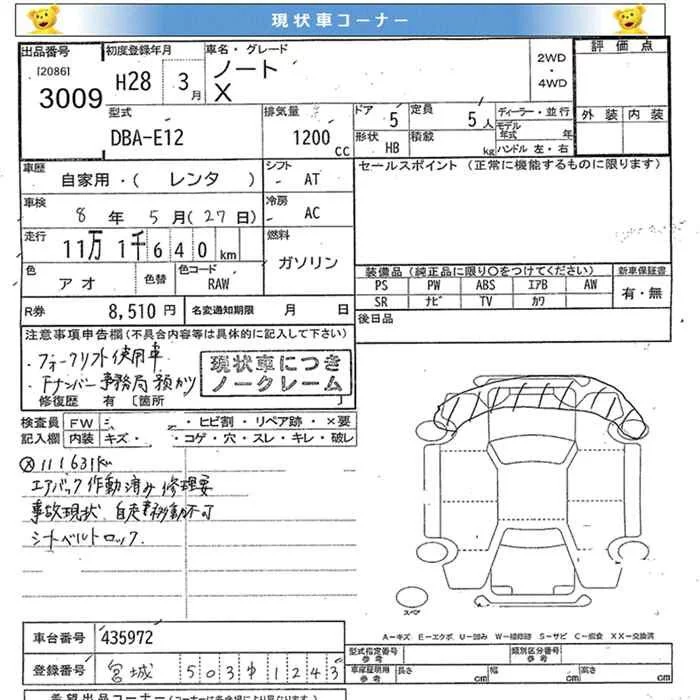 現状車コーナー
出品番号
[2086]
3009
初度登録年月
H28 3月
車名・グレード
ノート
X
2WD
・
4WD
評価点
外装 内装
型式
DBA-E12
排気量
1200
cc
ドア
5
定員
5人
形状
HB
積載
kg
ディーラー・並行
モデル年式 年
ハンドル 左・右
車歴
自家用・( レンタ )
シフト
AT
セールスポイント (正常に機能するものに限ります)
車検
8年 5月(27日)
冷房
AC
走行
11万 1千 640 km
燃料
ガソリン
色
アオ
色替
色コード
RAW
装備品 (純正品に限り○をつけてください)
新車保証書
PS PW ABS エアB AW
SR ナビ TV カワ
有・無
R券 8,510円
名変通知期限 月 日
後日品
注意事項申告欄(不具合内容等は具体的に記入して下さい)
・フォークリフト使用車
・Fナンバー事務局預かり
現状車につき
ノークレーム
修復歴 有 [箇所 ]
検査員 FW ・ヒビ割・リペア跡・×要
記入欄 内装 キズ・ ・コゲ・穴・スレ・キレ・破レ
111631km
エアバック作動済み 修理要
事故現状 自走移動不可
シートベルトロック.
スペア
A-キズ E-エクボ U-凹み W-補修跡 S-サビ C-腐食 XX-交換済
車台番号 435972
型式指定番号
参考
類別区分番号
参考
登録番号 宮城 503 1243
車庫証明用
参考
長さ cm 幅 cm 高さ cm
希望出品コーナー